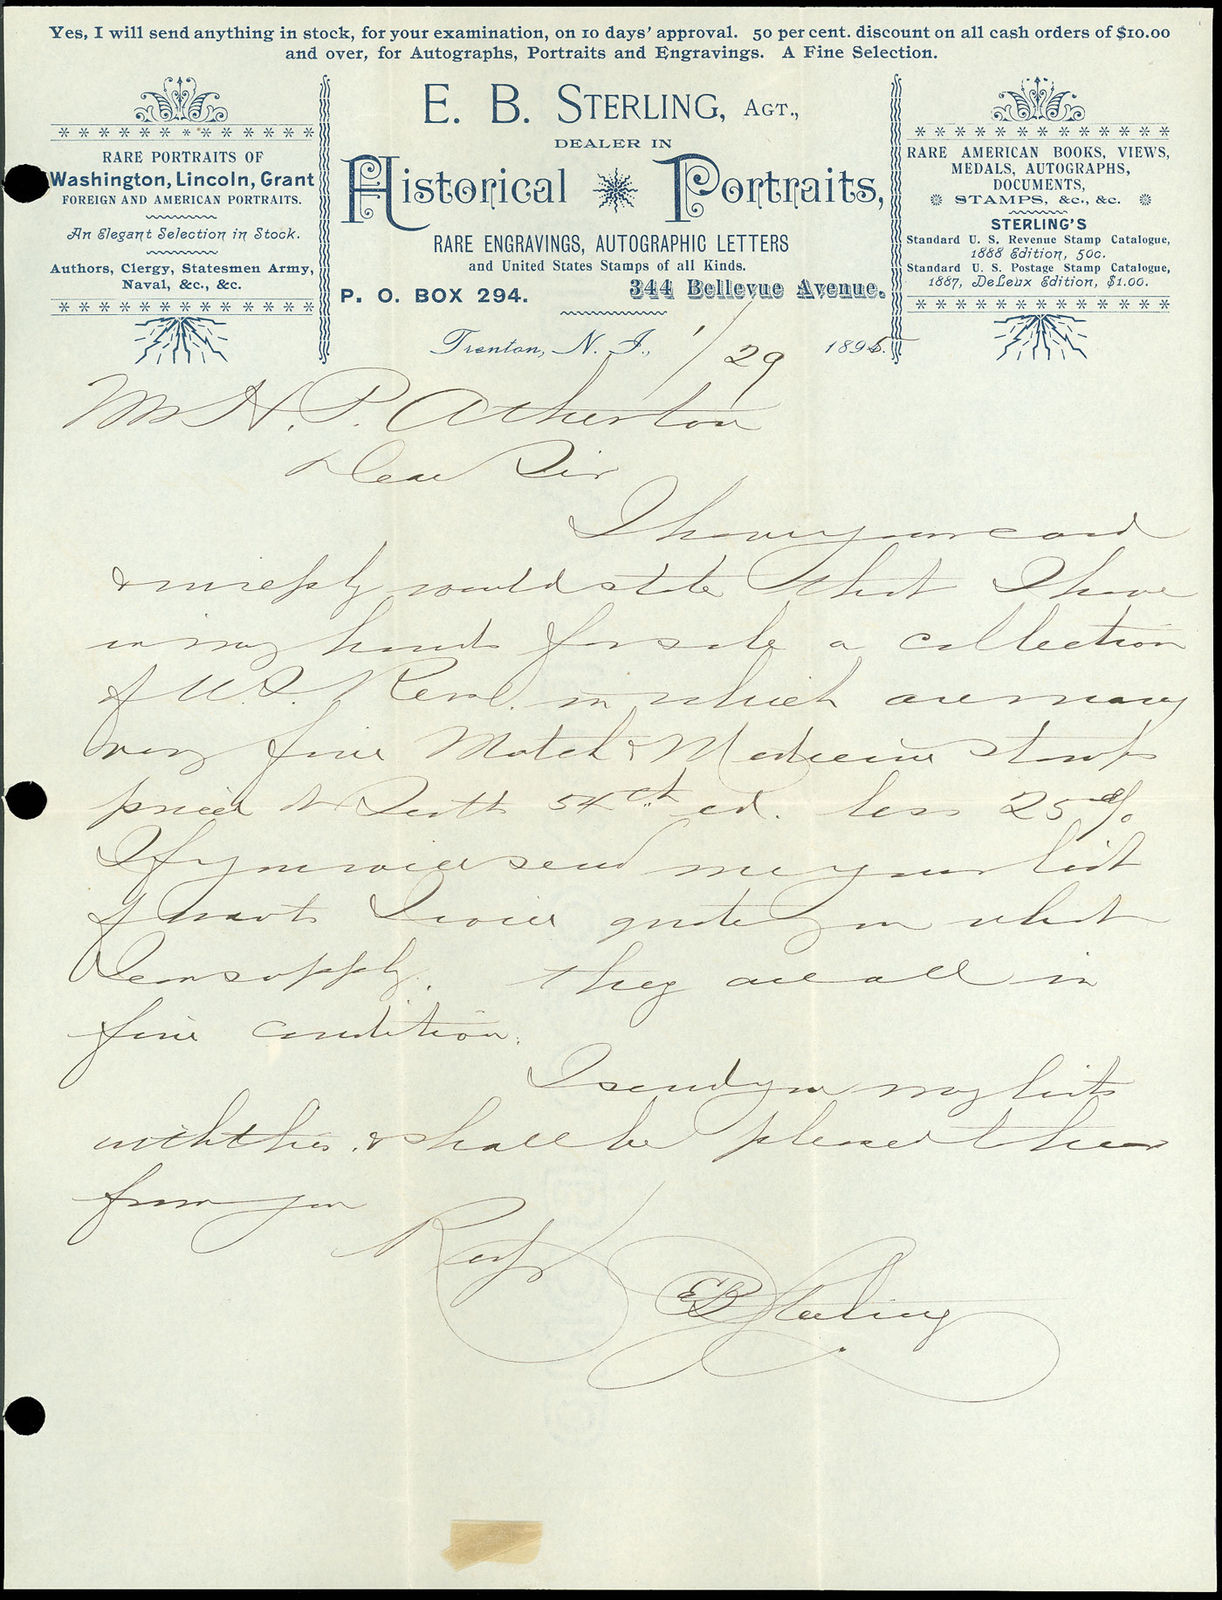 Yes, I will send anything in stock, for your examination, on 10 days' approval. 50 per cent. discount on all cash orders of $10.00
and over, for Autographs, Portraits and Engravings. A Fine Selection.
RARE PORTRAITS OF
Washington, Lincoln, Grant
FOREIGN AND AMERICAN PORTRAITS.
An Elegant Selection in Stock.
Authors, Clergy, Statesmen Army,
Naval, &c., &c.
E. B. STERLING, AGT.,
DEALER IN
Historical Portraits,
RARE ENGRAVINGS, AUTOGRAPHIC LETTERS
and United States Stamps of all Kinds.
P. O. BOX 294. 344 Bellevue Avenue.
RARE AMERICAN BOOKS, VIEWS,
MEDALS, AUTOGRAPHS,
DOCUMENTS,
STAMPS, &c., &c.
STERLING'S
Standard U. S. Revenue Stamp Catalogue,
1888 Edition, 50c.
Standard U. S. Postage Stamp Catalogue,
1887, DeLeux Edition, $1.00.
Trenton, N. J., 1/29 1895.
Mr H. P. Atherton
Dear Sir
I have your card
& in reply would state that I have
in my hands for sale a collection
of U.S. Rev. in which are many
very fine Match & Medicine stamps
priced at Scott 54th ed. less 25%
If you will send me your list
of wants I will quote you what
I can supply. They are all in
fine condition.
I send you my lists
with this. & shall be pleased to hear
from you
Resp
EB Sterling